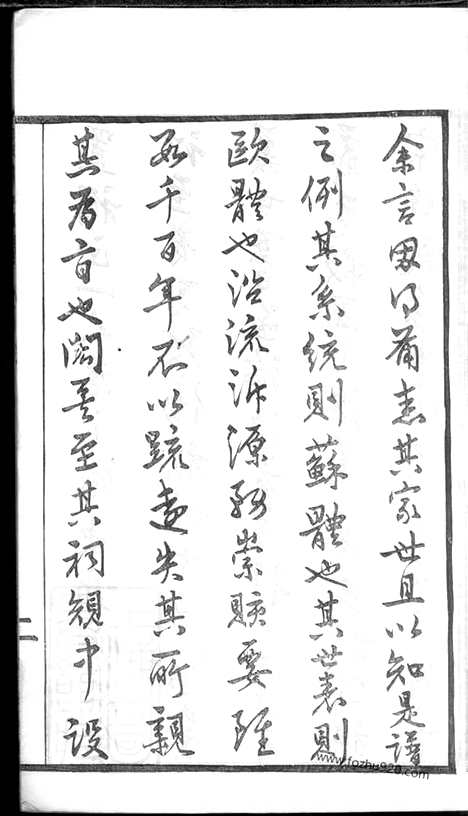 余言因得備悉其家世且以知是譜
之例其系統則蘇體也其世表則
歐體也沿流泝源 崇賅要雖
數千百年不以疏遠失其所親
其為言也闊 至其祠規中設
二
www.fozhu920.com